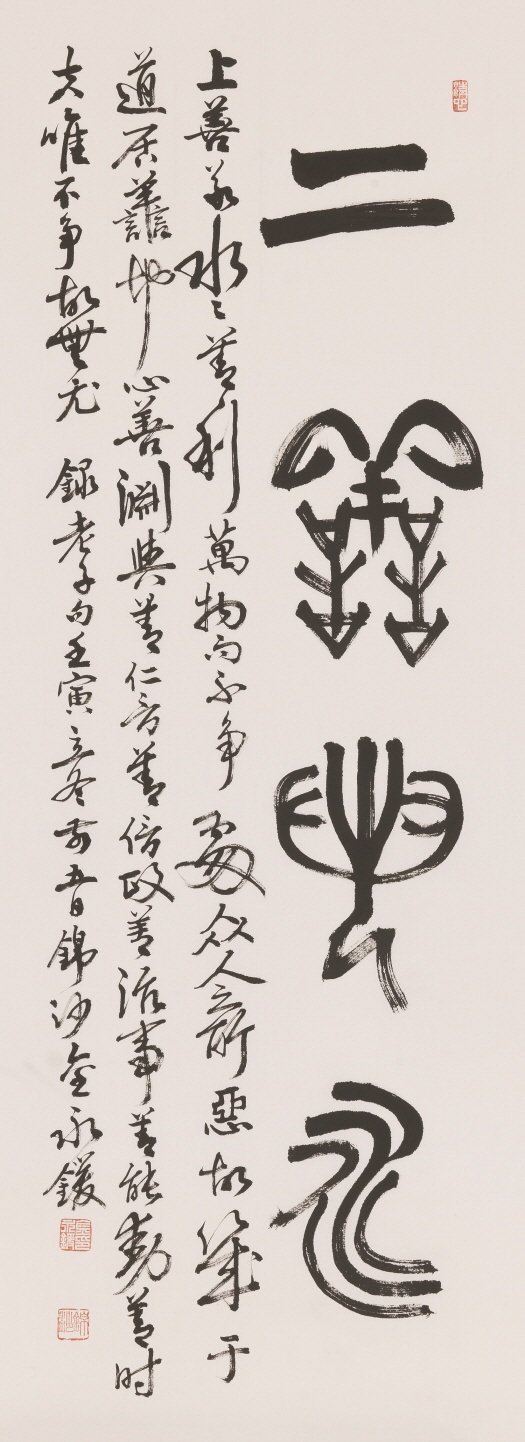 上善若水
上善若水〻善利萬物而不争處众人之所惡故幾于
道居譱地心善淵與善仁言善信政善治事善能動善时
夫唯不争故無尤 錄老子句壬寅立冬前五日錦沙金永